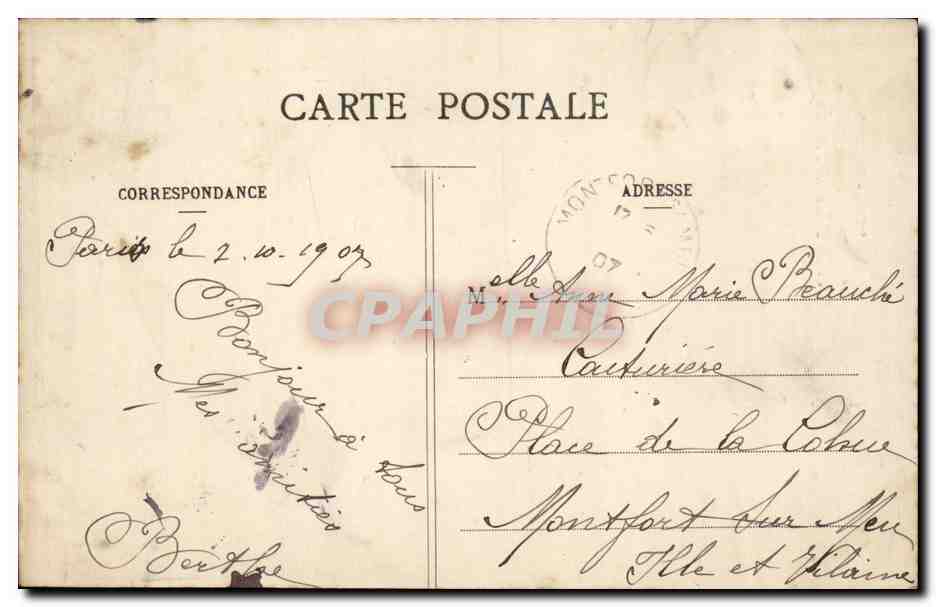 CARTE POSTALE
CORRESPONDANCE
Paris le 2.10.1907
Bonjour à tous
Mes amitiés
Berthe
ADRESSE
Melle Anne Marie Beauché
Couturière
Place de la Cohue
Montfort Sur Meu
Ille et Vilaine
07
CPAPHIL